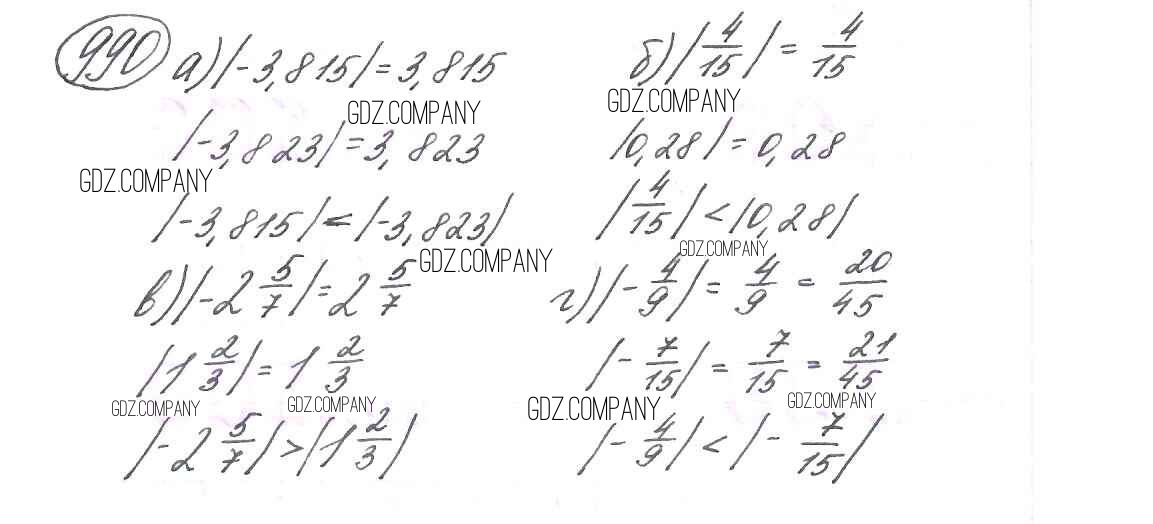 990 а) |-3,815| = 3,815
|-3,823| = 3,823
|-3,815| < |-3,823|
б) |4/15| = 4/15
|0,28| = 0,28
|4/15| < |0,28|
в) |-2 5/7| = 2 5/7
|1 2/3| = 1 2/3
|-2 5/7| > |1 2/3|
г) |-4/9| = 4/9 = 20/45
|-7/15| = 7/15 = 21/45
|-4/9| < |-7/15|
GDZ.COMPANY
GDZ.COMPANY
GDZ.COMPANY
GDZ.COMPANY
GDZ.COMPANY
GDZ.COMPANY
GDZ.COMPANY
GDZ.COMPANY
GDZ.COMPANY